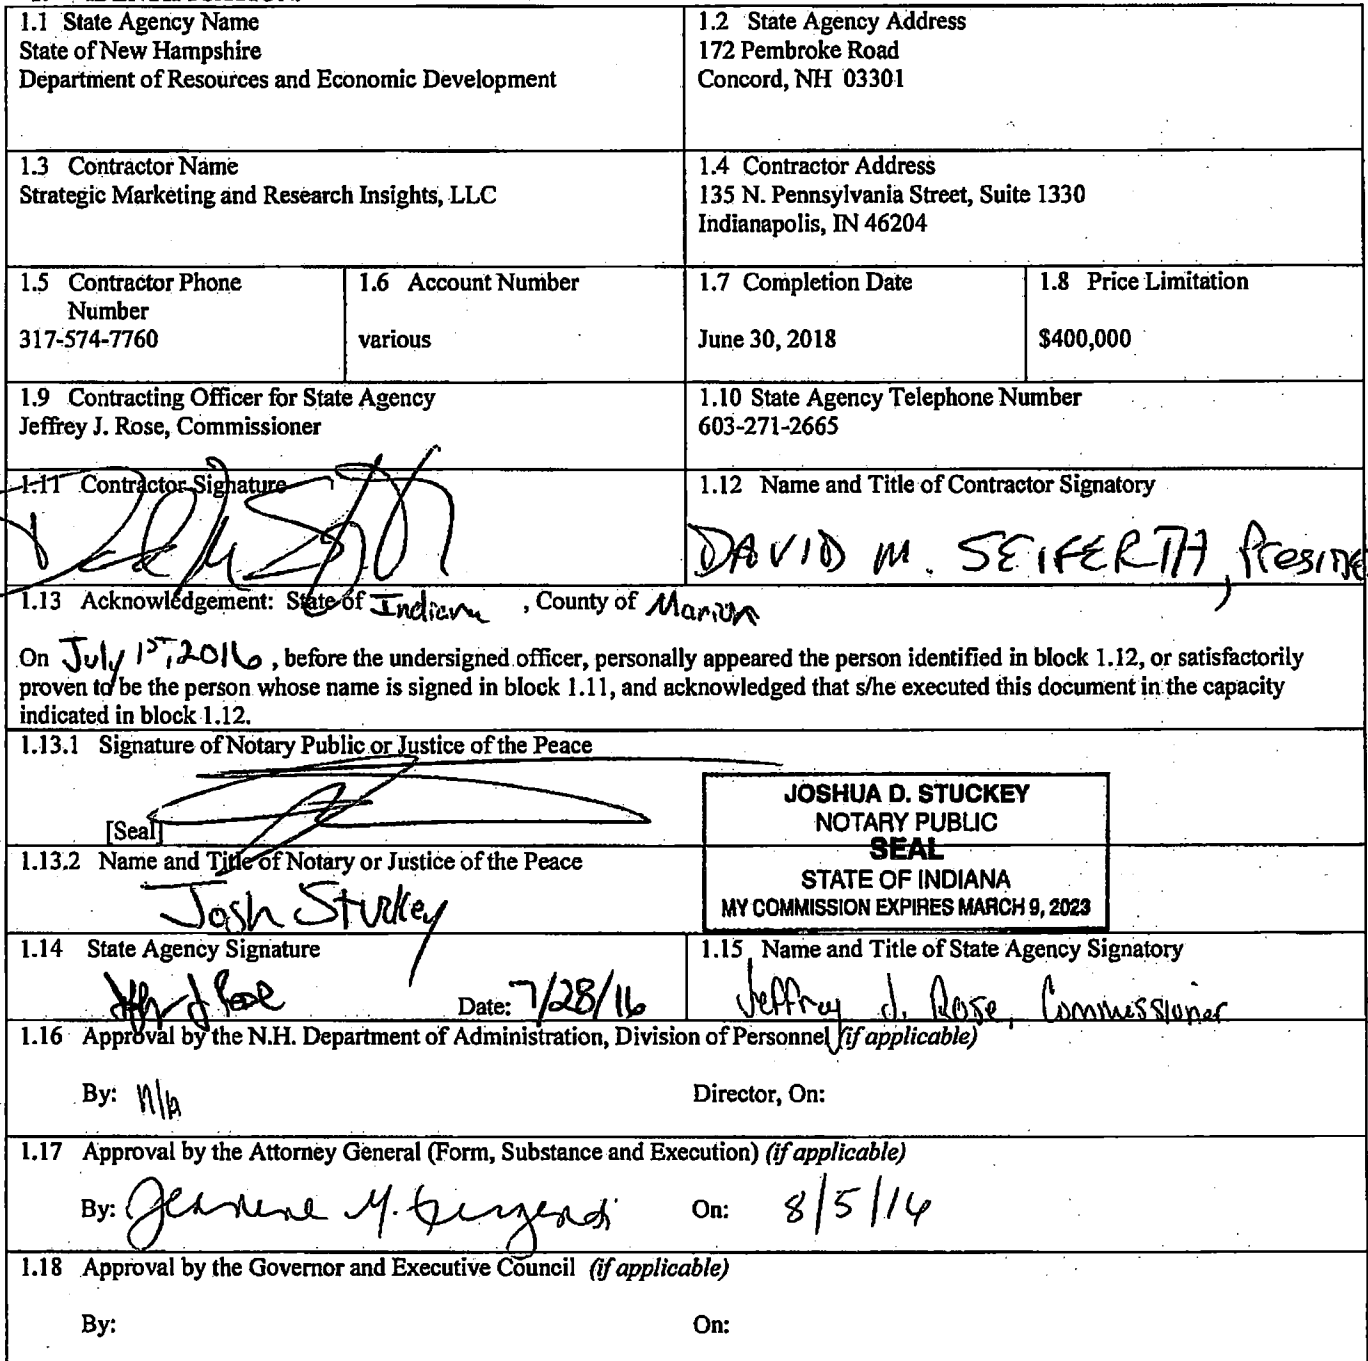 1.1 State Agency Name
State of New Hampshire
Department of Resources and Economic Development
1.2 State Agency Address
172 Pembroke Road
Concord, NH 03301
1.3 Contractor Name
Strategic Marketing and Research Insights, LLC
1.4 Contractor Address
135 N. Pennsylvania Street, Suite 1330
Indianapolis, IN 46204
1.5 Contractor Phone
Number
317-574-7760
1.6 Account Number
various
1.7 Completion Date
June 30, 2018
1.8 Price Limitation
$400,000
1.9 Contracting Officer for State Agency
Jeffrey J. Rose, Commissioner
1.10 State Agency Telephone Number
603-271-2665
1.11 Contractor Signature
1.12 Name and Title of Contractor Signatory
DAVID M. SEIFERTH,
1.13 Acknowledgement: State of Indiana , County of Marion
On July 1st, 2016 , before the undersigned officer, personally appeared the person identified in block 1.12, or satisfactorily
proven to be the person whose name is signed in block 1.11, and acknowledged that s/he executed this document in the capacity
indicated in block 1.12.
1.13.1 Signature of Notary Public or Justice of the Peace
[Seal]
JOSHUA D. STUCKEY
NOTARY PUBLIC
SEAL
STATE OF INDIANA
MY COMMISSION EXPIRES MARCH 9, 2023
1.13.2 Name and Title of Notary or Justice of the Peace
Josh Stuckey
1.14 State Agency Signature
Date: 7/28/16
1.15 Name and Title of State Agency Signatory
Jeffrey J. Rose, Commissioner
1.16 Approval by the N.H. Department of Administration, Division of Personnel (if applicable)
By: n/a
Director, On:
1.17 Approval by the Attorney General (Form, Substance and Execution) (if applicable)
By:
On: 8/5/16
1.18 Approval by the Governor and Executive Council (if applicable)
By:
On: